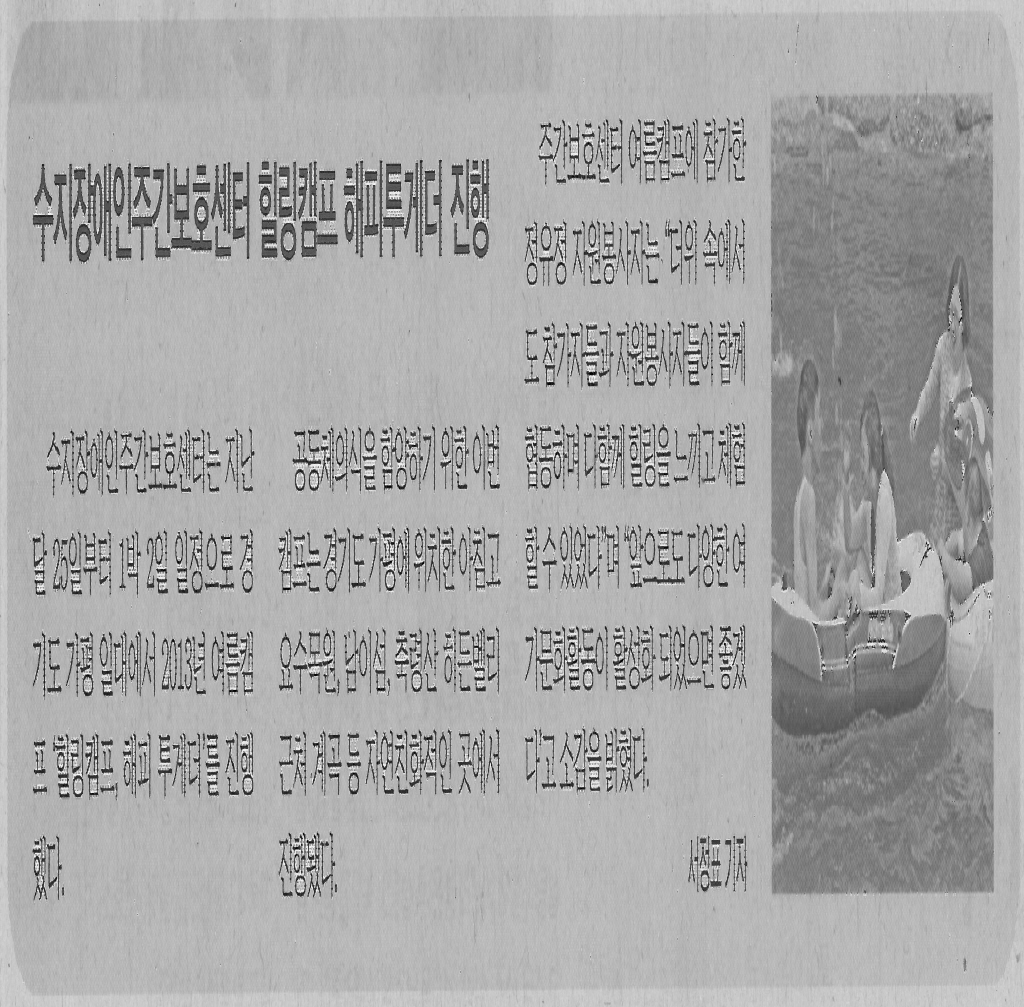 수지장애인주간보호센터 힐링캠프 해피투게더 진행
수지장애인주간보호센터는 지난
달 25일부터 1박 2일 일정으로 경
기도 가평 일대에서 2013년 여름캠
프 '힐링캠프, 해피 투게더'를 진행
했다.
공동체의식을 함양하기 위한 이번
캠프는 경기도 가평에 위치한 아침고
요수목원, 남이섬, 축령산 하든벨리
근처 계곡 등 자연친화적인 곳에서
진행됐다.
주간보호센터 여름캠프에 참가한
정유정 자원봉사자는 "더위 속에서
도 참가자들과 자원봉사자들이 함께
협동하며 다함께 힐링을 느끼고 체험
할 수 있었다"며 "앞으로도 다양한 여
가문화활동이 활성화 되었으면 좋겠
다"고 소감을 밝혔다.
서정표 기자